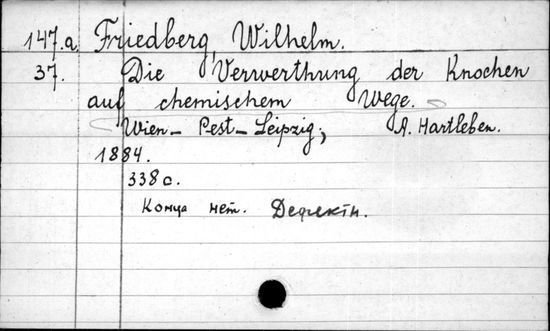 147.a Friedberg, Wilhelm.
37. Die Verwerthung der Knochen
auf chemischem Wege.
Wien- Pest- Leipzig, A. Hartleben.
1884.
338 с.
Конца нет. Дефектн.